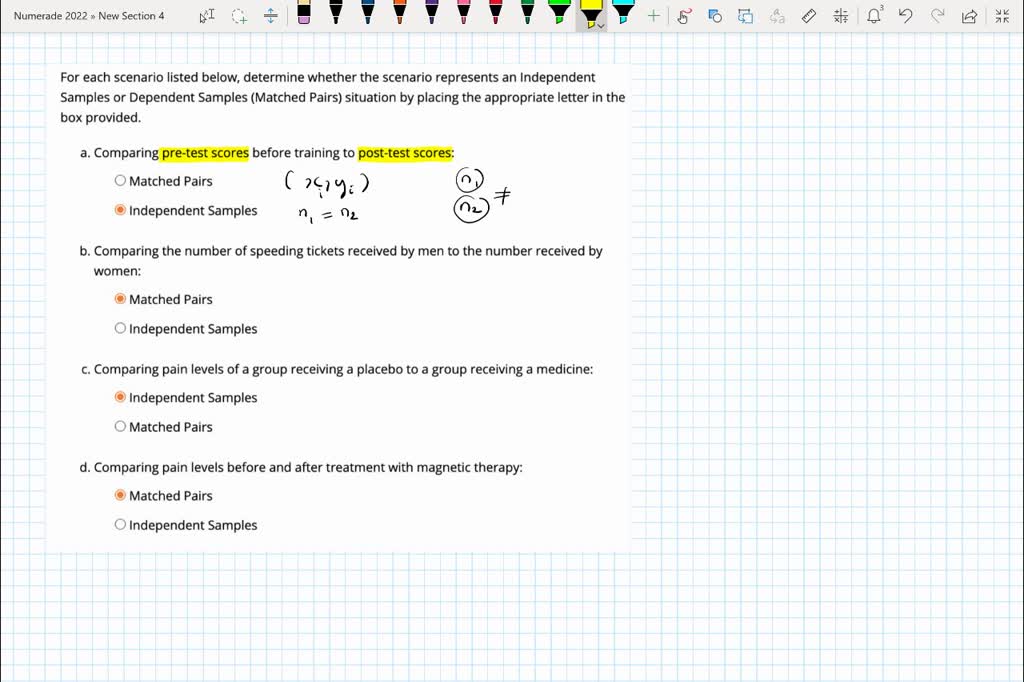 Numerade 2022 » New Section 4
3
For each scenario listed below, determine whether the scenario represents an Independent
Samples or Dependent Samples (Matched Pairs) situation by placing the appropriate letter in the
box provided.
a. Comparing pre-test scores before training to post-test scores:
Matched Pairs
(xᵢ, yᵢ)
n₁
Independent Samples
n₁ = n₂
n₂ ≠
b. Comparing the number of speeding tickets received by men to the number received by
women:
Matched Pairs
Independent Samples
c. Comparing pain levels of a group receiving a placebo to a group receiving a medicine:
Independent Samples
Matched Pairs
d. Comparing pain levels before and after treatment with magnetic therapy:
Matched Pairs
Independent Samples